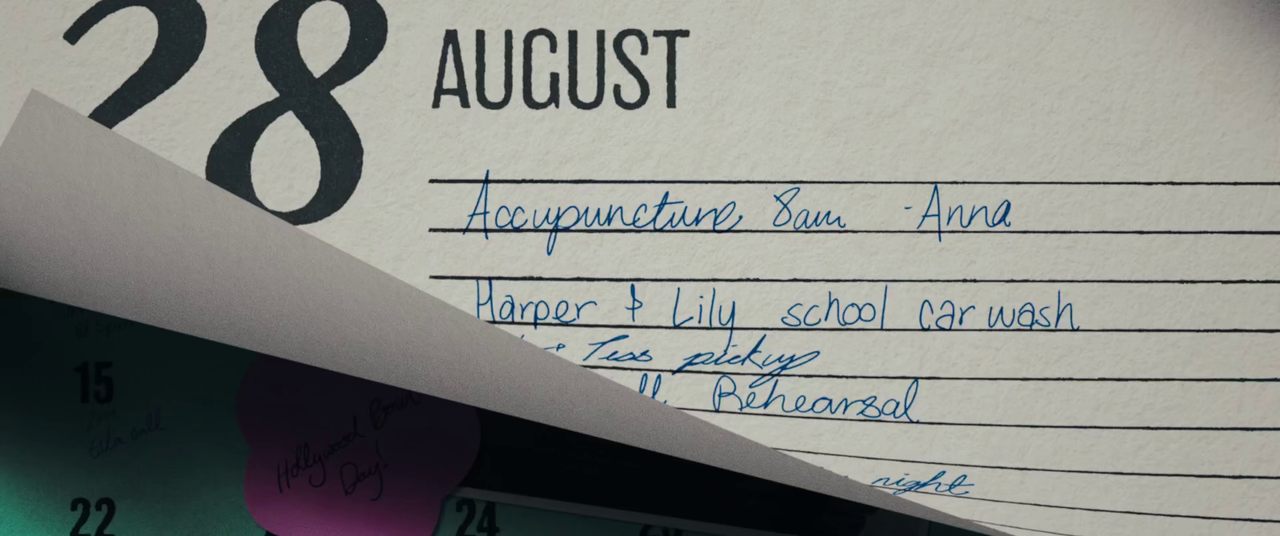 28
AUGUST
Accupuncture 8am - Anna
Harper & Lily school car wash
Tess pickup
Rehearsal
night
15
22
24
Hollywood Bowl
Day!